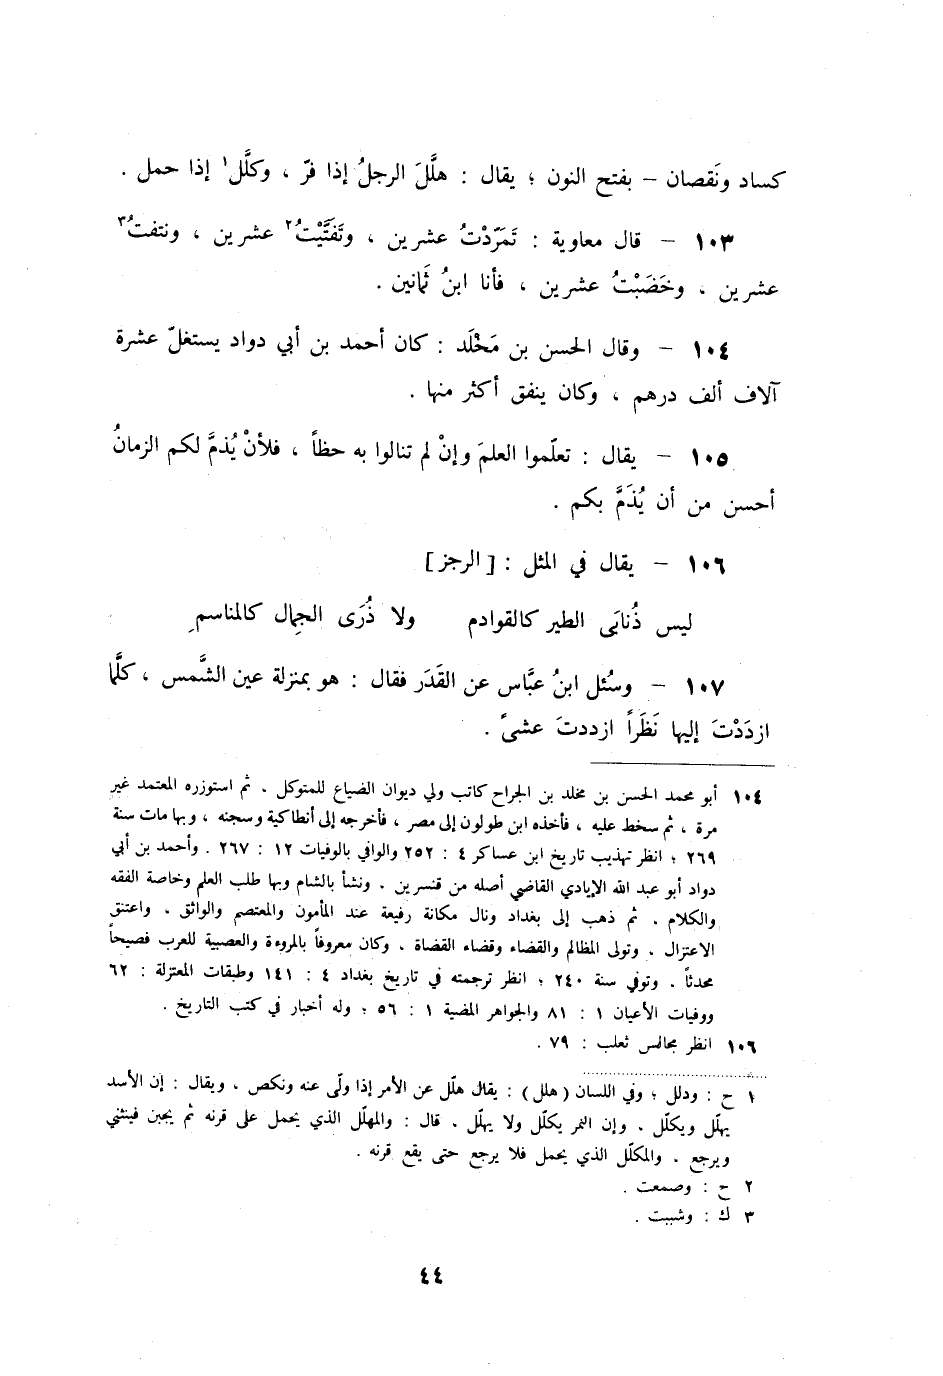 كساد ونَقصان – بفتح النون ؛ يقال : هلَّلَ الرجلُ إذا فرّ ، وكلَّل١ إذا حمل .
١٠٣ – قال معاوية : تَمَرّدْتُ عشرين ، وتَفَتَّيْتُ٢ عشرين ، ونتفتُ٣
عشرين ، وخَضَبْتُ عشرين ، فأنا ابنُ ثَمانين .
١٠٤ – وقال الحسن بن مَخْلَد : كان أحمد بن أبي دواد يستغلّ عشرة
آلاف ألف درهم ، وكان ينفق أكثر منها .
١٠٥ – يقال : تعلّموا العلمَ وإنْ لم تنالوا به حظاً ، فلأنْ يُذمَّ لكم الزمانُ
أحسن من أن يُذَمَّ بكم .
١٠٦ – يقال في المثل : [ الرجز ]
ليس ذُنابَى الطير كالقوادم ولا ذُرَى الجِمال كالمناسمِ
١٠٧ – وسُئل ابنُ عبَّاس عن القَدَر فقال : هو بمنزلة عين الشَّمس ، كلَّما
ازدَدْتَ إليها نَظَراً ازددتَ عشىً .
١٠٤ أبو محمد الحسن بن مخلد بن الجراح كاتب ولي ديوان الضياع للمتوكل . ثم استوزره المعتمد غير
مرة ، ثم سخط عليه ، فأخذه ابن طولون إلى مصر ، فأخرجه إلى أنطاكية وسجنه ، وبها مات سنة
٢٦٩ ؛ انظر تهذيب تاريخ ابن عساكر ٤ : ٢٥٢ والوافي بالوفيات ١٢ : ٢٦٧ . وأحمد بن أبي
دواد أبو عبد الله الإيادي القاضي أصله من قنسرين . ونشأ بالشام وبها طلب العلم وخاصة الفقه
والكلام . ثم ذهب إلى بغداد ونال مكانة رفيعة عند المأمون والمعتصم والواثق . واعتنق
الاعتزال . وتولى المظالم والقضاء وقضاء القضاة . وكان معروفاً بالمروءة والعصبية للعرب فصيحاً
محدثاً . وتوفي سنة ٢٤٠ ؛ انظر ترجمته في تاريخ بغداد ٤ : ١٤١ وطبقات المعتزلة : ٦٢
ووفيات الأعيان ١ : ٨١ والجواهر المضية ١ : ٥٦ ؛ وله أخبار في كتب التاريخ .
١٠٦ انظر مجالس ثعلب : ٧٩ .
١ ح : ودلل ؛ وفي اللسان ( هلل ) : يقال هلّل عن الأمر إذا ولّى عنه ونكص . ويقال : إن الأسد
يهلّل ويكلّل . وإن النمر يكلّل ولا يهلّل . قال : والمهلّل الذي يحمل على قرنه ثم يجبن فينثني
ويرجع . والمكلّل الذي يحمل فلا يرجع حتى يقع قرنه .
٢ ح : وصمعت .
٣ ك : وشببت .
٤٤